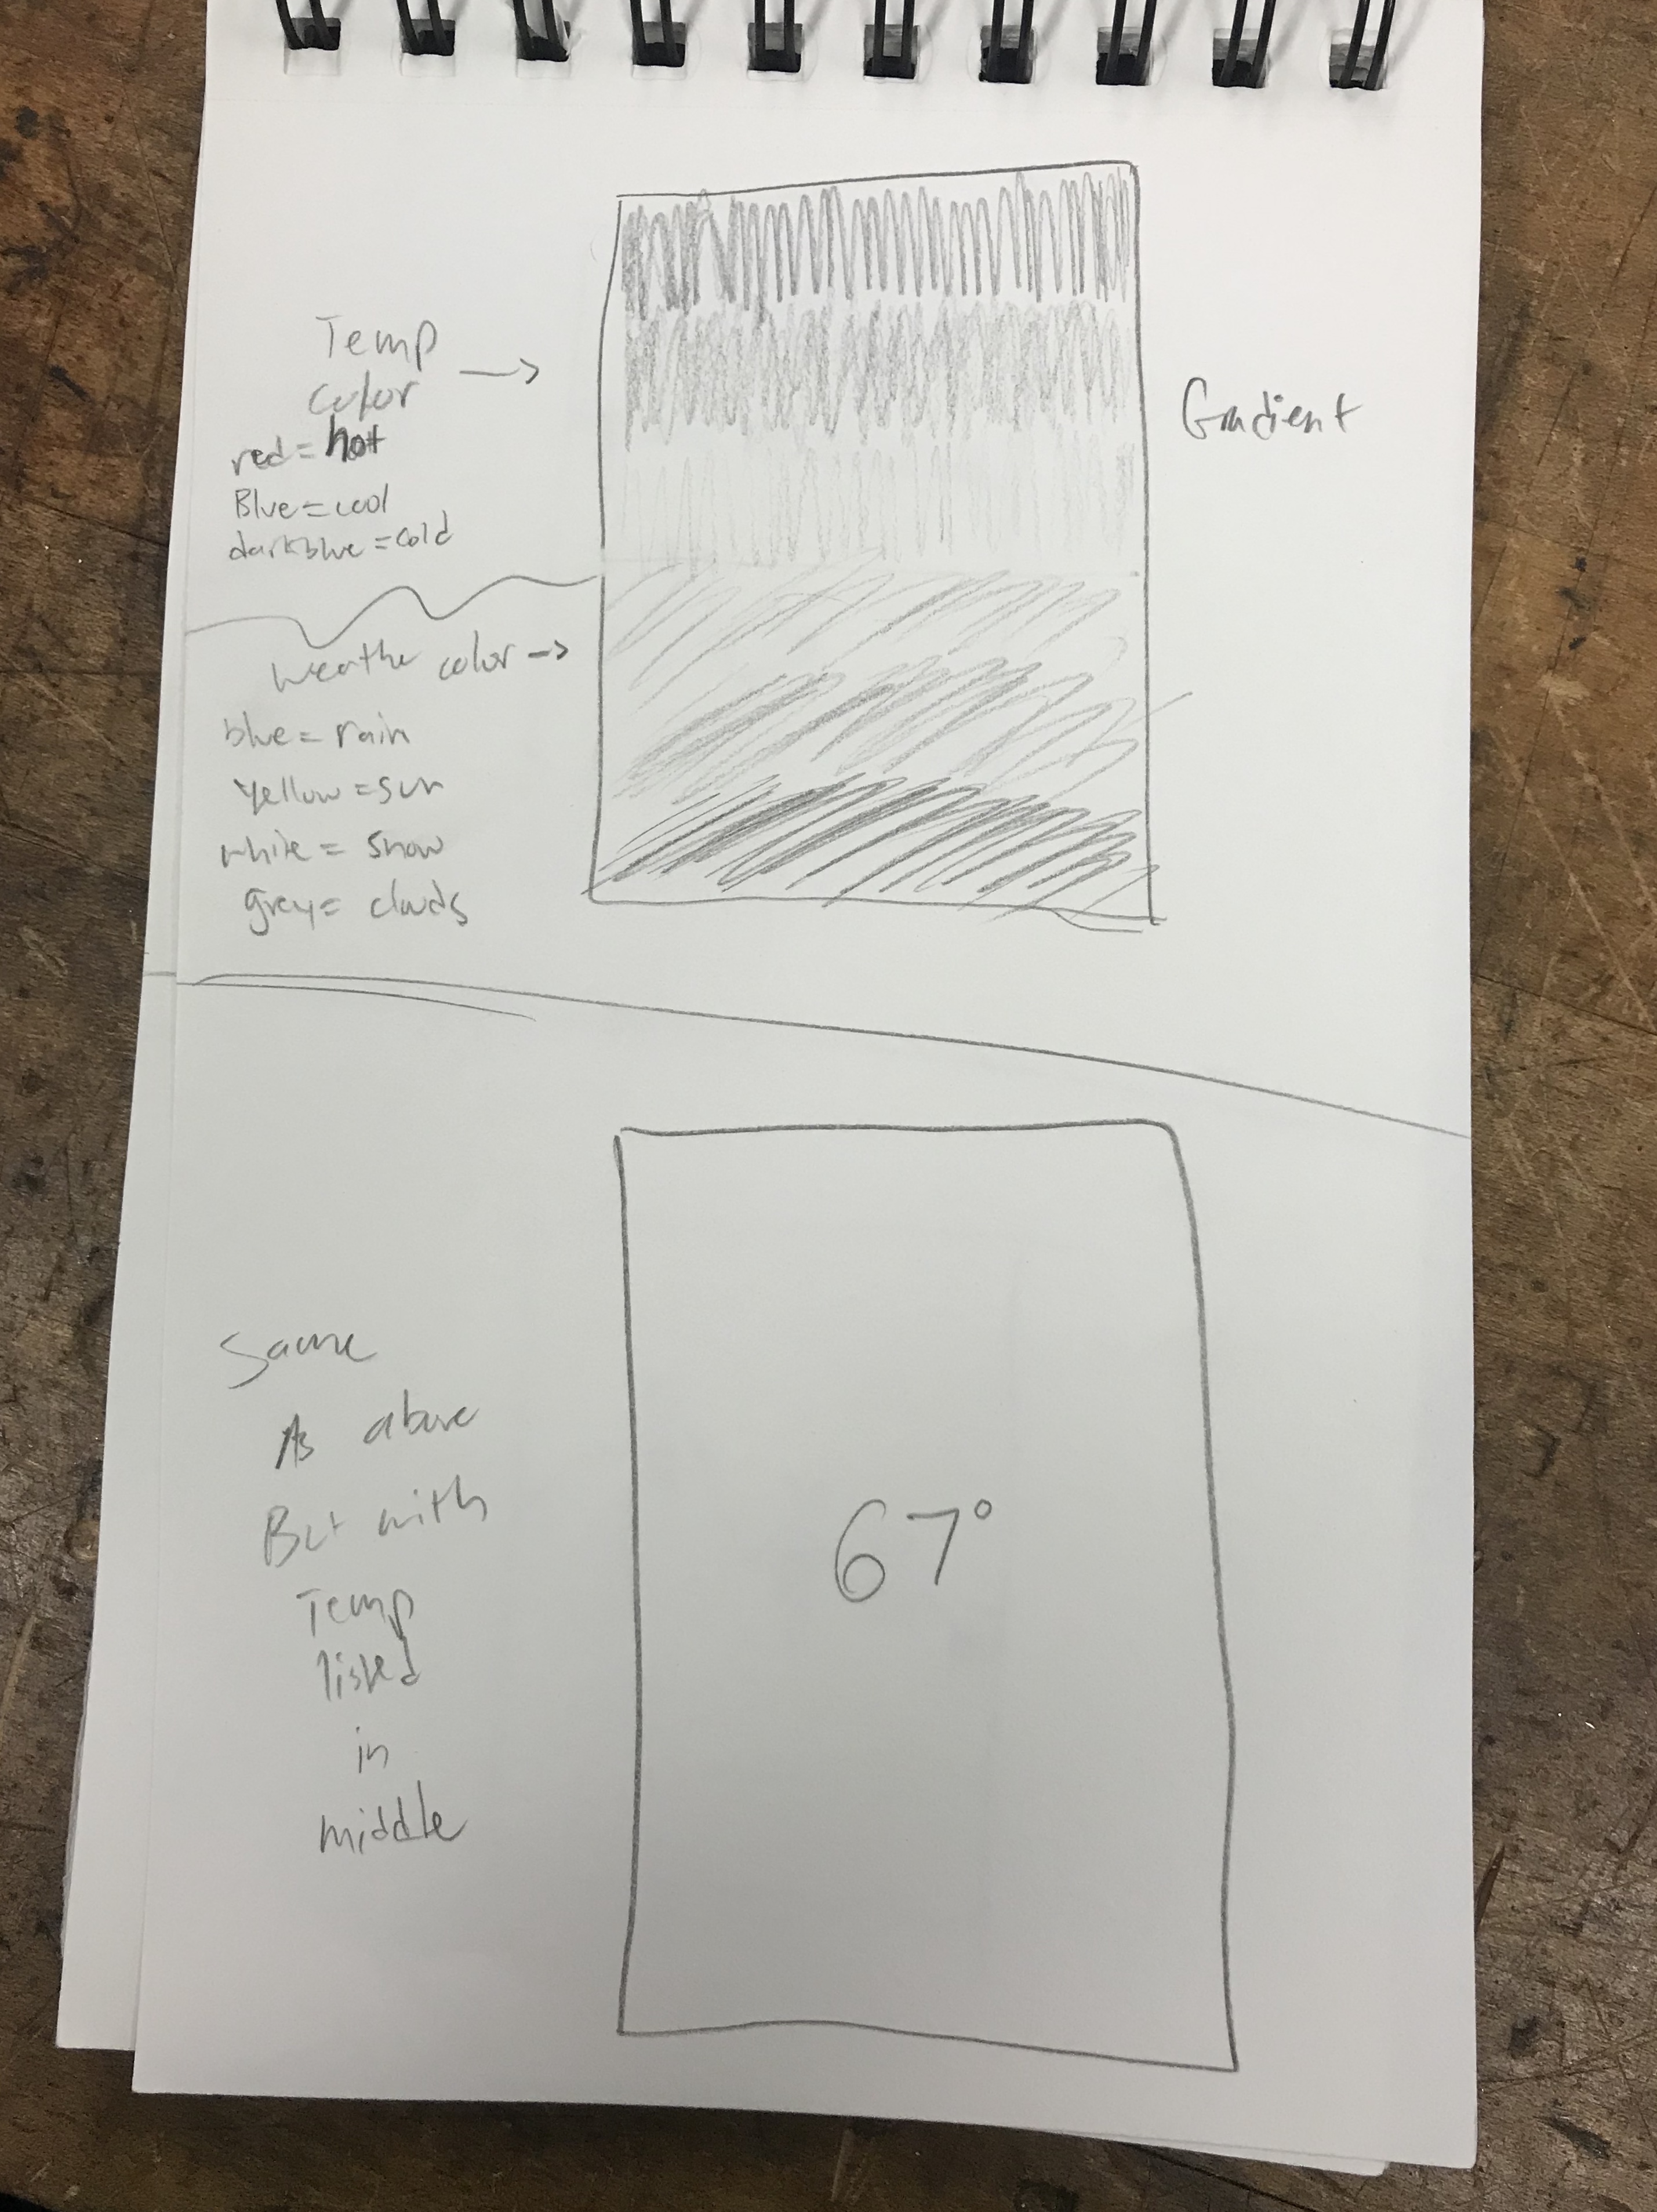 Temp
color →
red = hot
Blue = cool
darkblue = cold
Gradient
weathe color →
blue = rain
yellow = sun
white = snow
grey = clouds
Same
As above
But with
Temp
listed
in
middle
67°